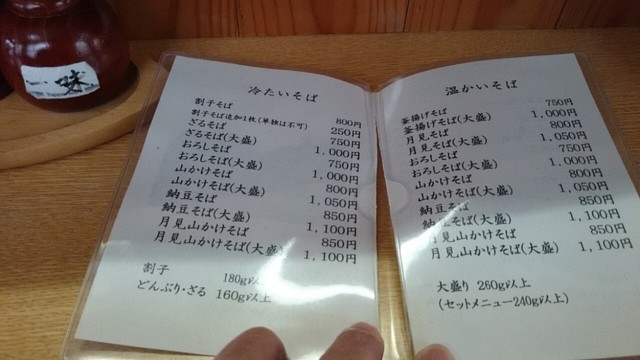 一味
冷たいそば
割子そば 800円
割子そば追加1枚(単独は不可) 250円
ざるそば 750円
ざるそば(大盛) 1,000円
おろしそば 750円
おろしそば(大盛) 1,000円
山かけそば 800円
山かけそば(大盛) 1,050円
納豆そば 850円
納豆そば(大盛) 1,100円
月見山かけそば 850円
月見山かけそば(大盛) 1,100円
割子 180g以上
どんぶり・ざる 160g以上
温かいそば
釜揚げそば 750円
釜揚げそば(大盛) 1,000円
月見そば 800円
月見そば(大盛) 1,050円
おろしそば 750円
おろしそば(大盛) 1,000円
山かけそば 800円
山かけそば(大盛) 1,050円
納豆そば 850円
納豆そば(大盛) 1,100円
月見山かけそば 850円
月見山かけそば(大盛) 1,100円
大盛り 260g以上
(セットメニュー240g以上)